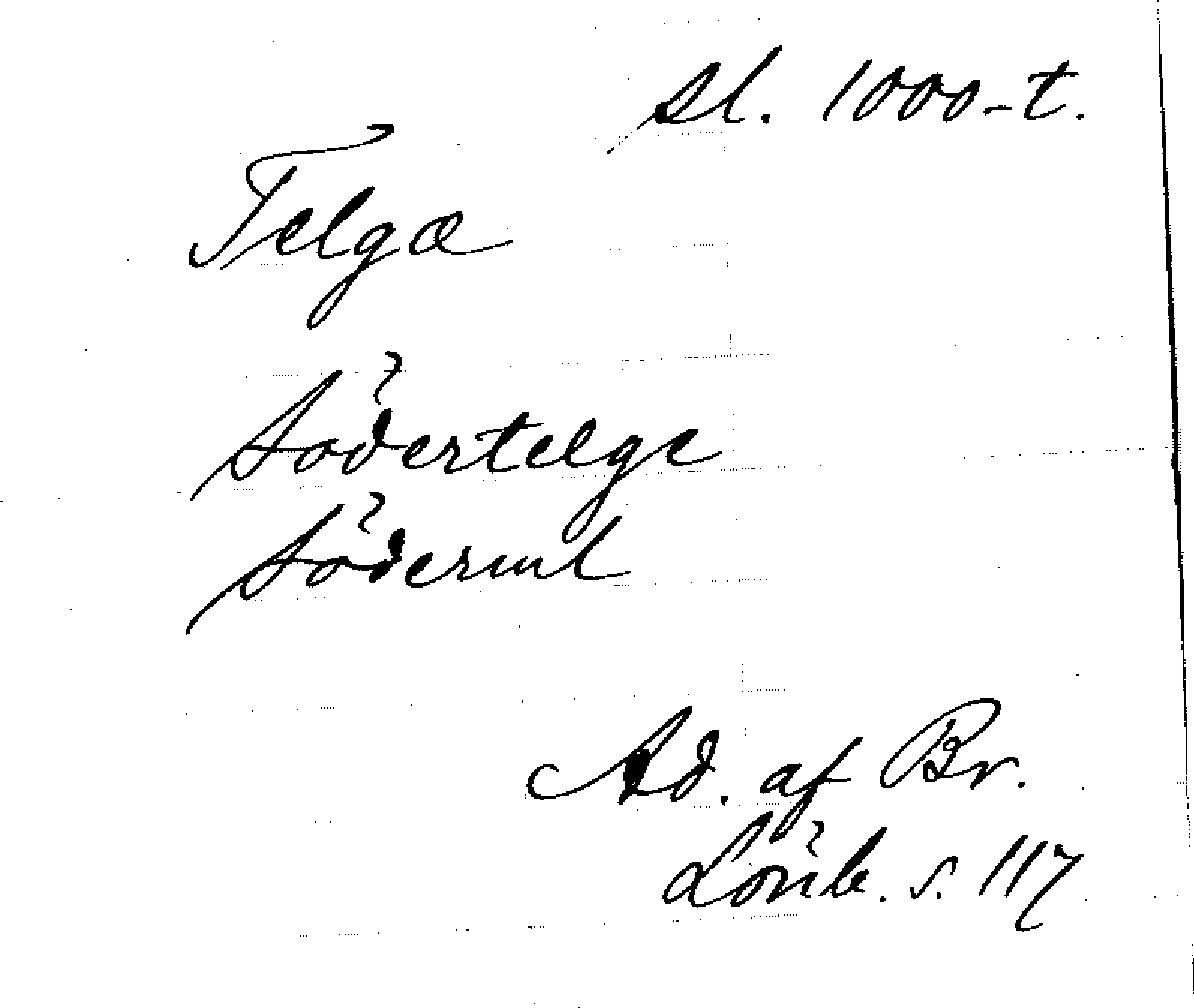 sl. 1000-t.
Telgæ
Södertelge
Söderml
Ad. af Br.
Lönb. s. 117